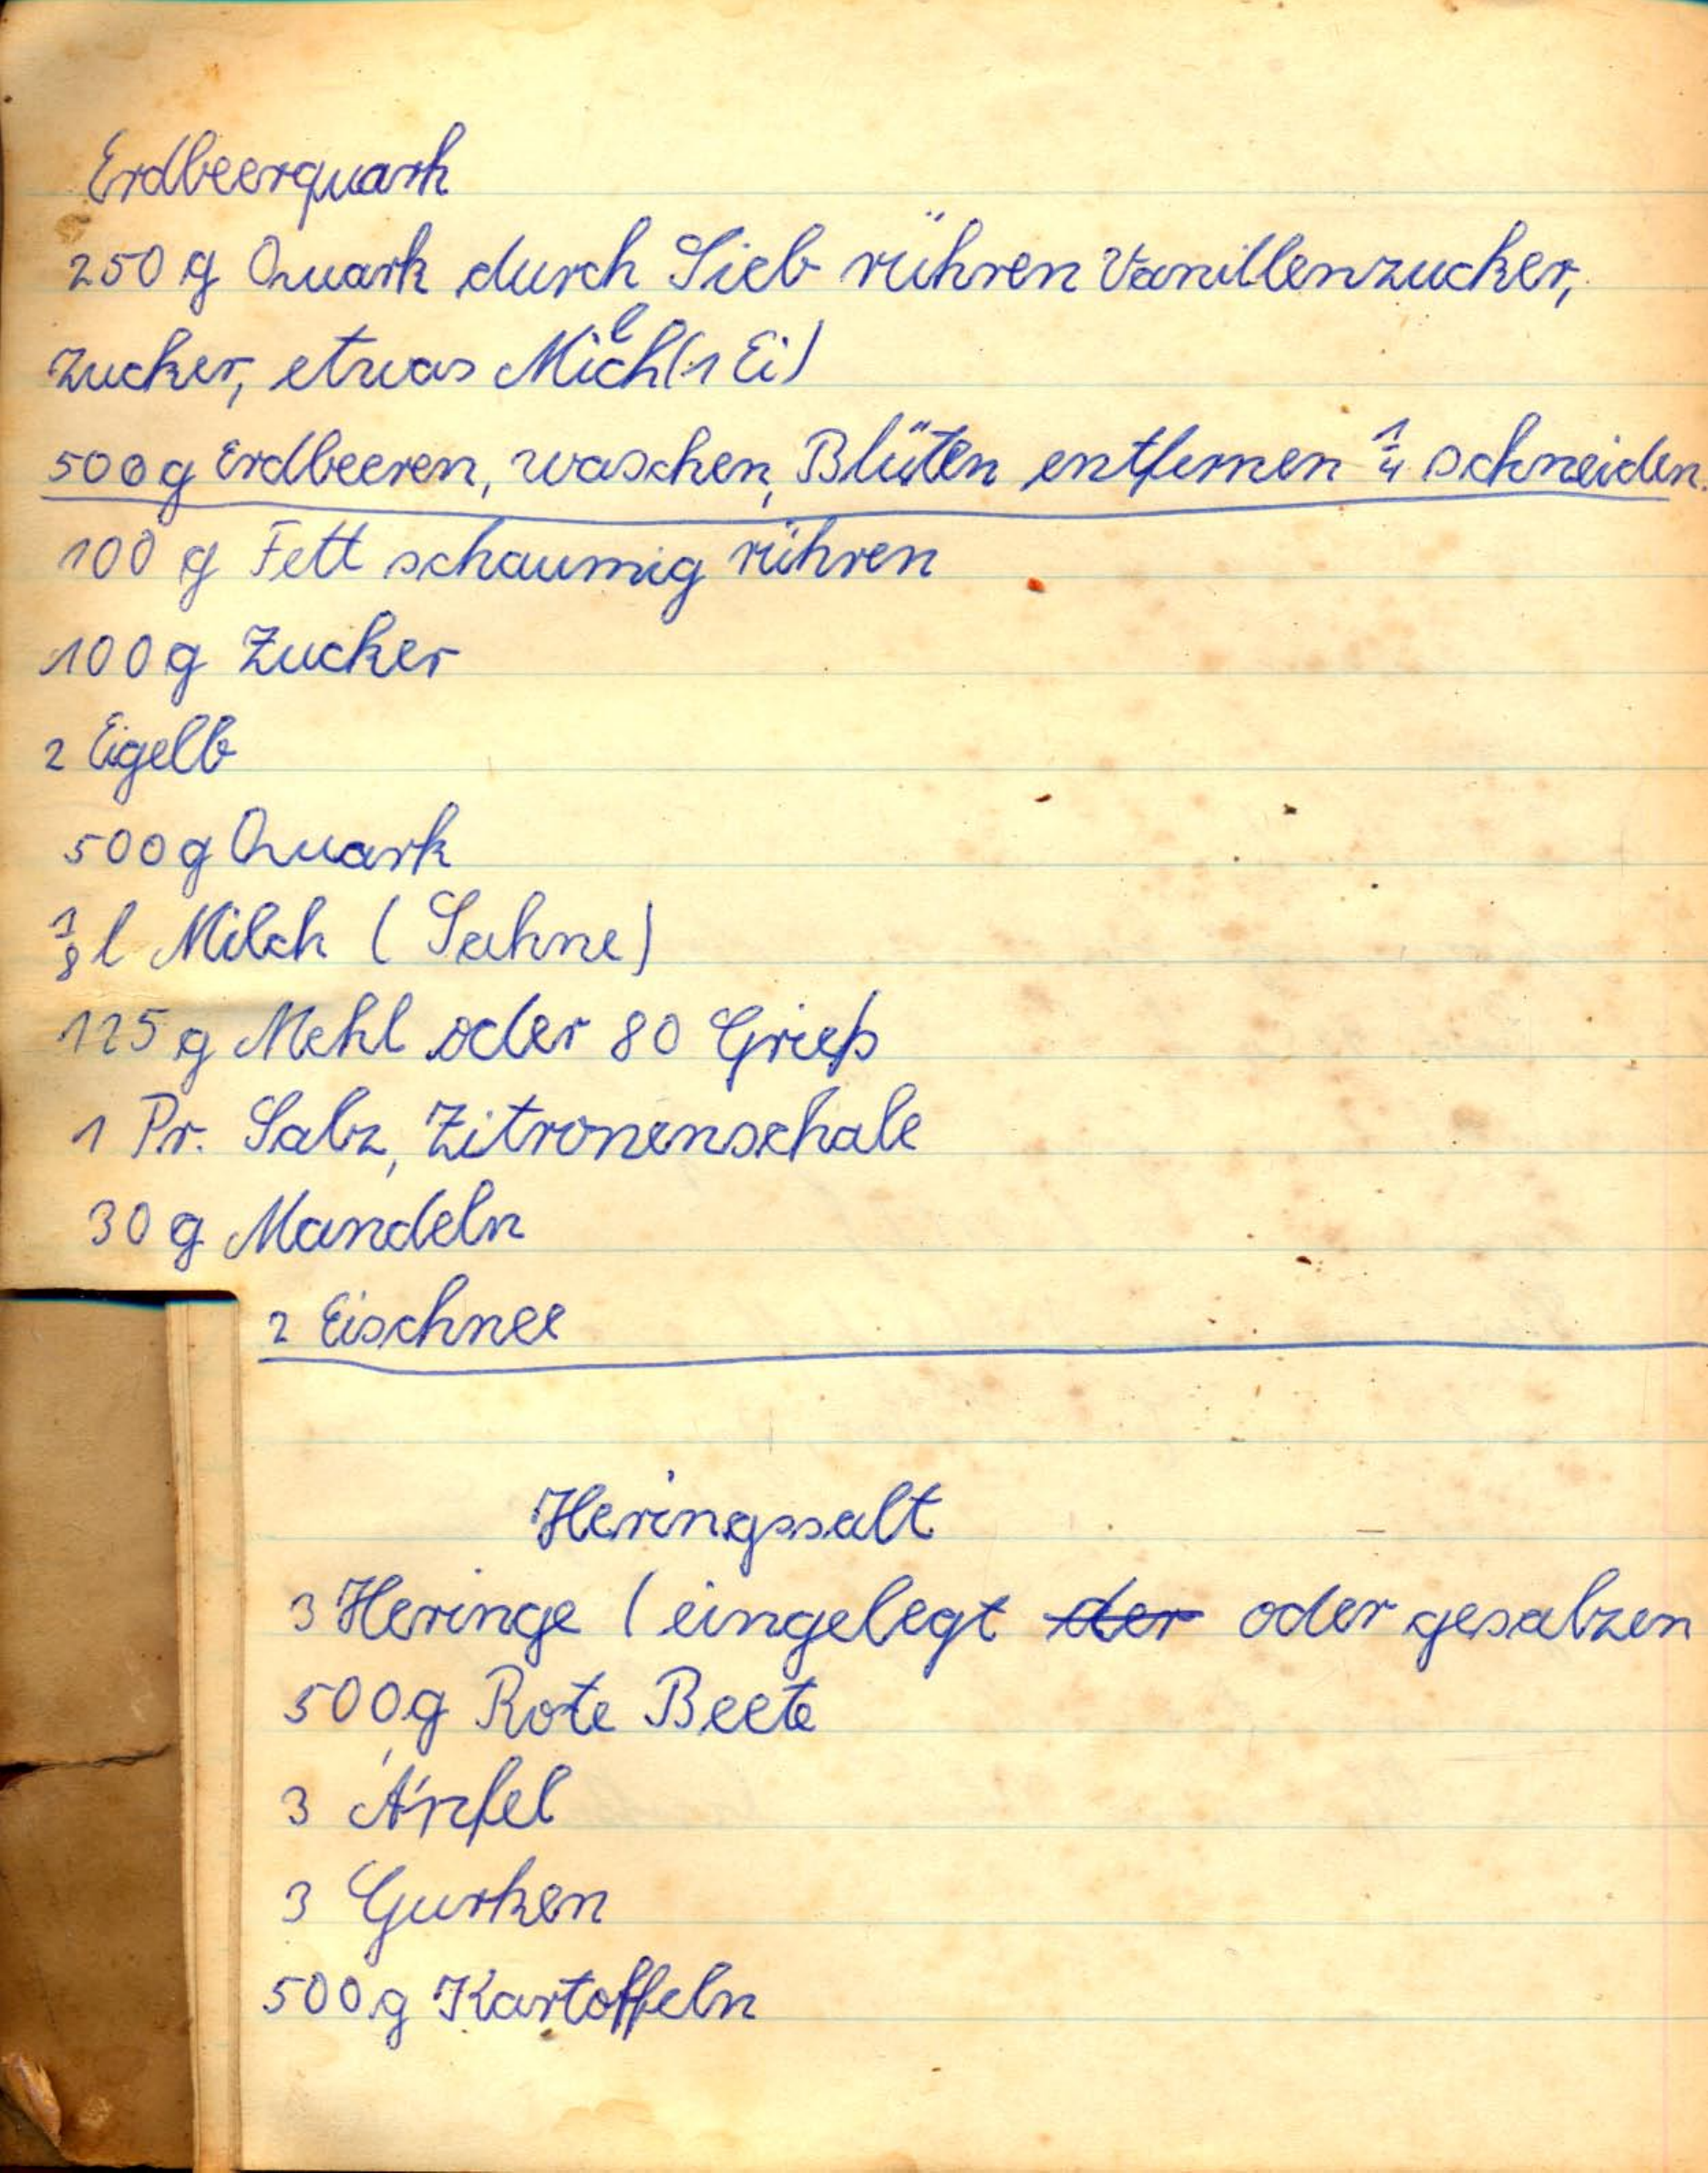 Erdbeerquark
250 g Quark durch Sieb rühren Vanillenzucker,
Zucker, etwas Milch (1 Ei)
500g Erdbeeren, waschen, Blüten entfernen 1/4 schneiden.
100 g Fett schaumig rühren
100g Zucker
2 Eigelb
500g Quark
1/8 l Milch (Sahne)
125 g Mehl oder 80 Grieß
1 Pr. Salz, Zitronenschale
30 g Mandeln
2 Eischnee
Heringssalt
3 Heringe (eingelegt der oder gesalzen
500g Rote Beete
3 Äpfel
3 Gurken
500g Kartoffeln